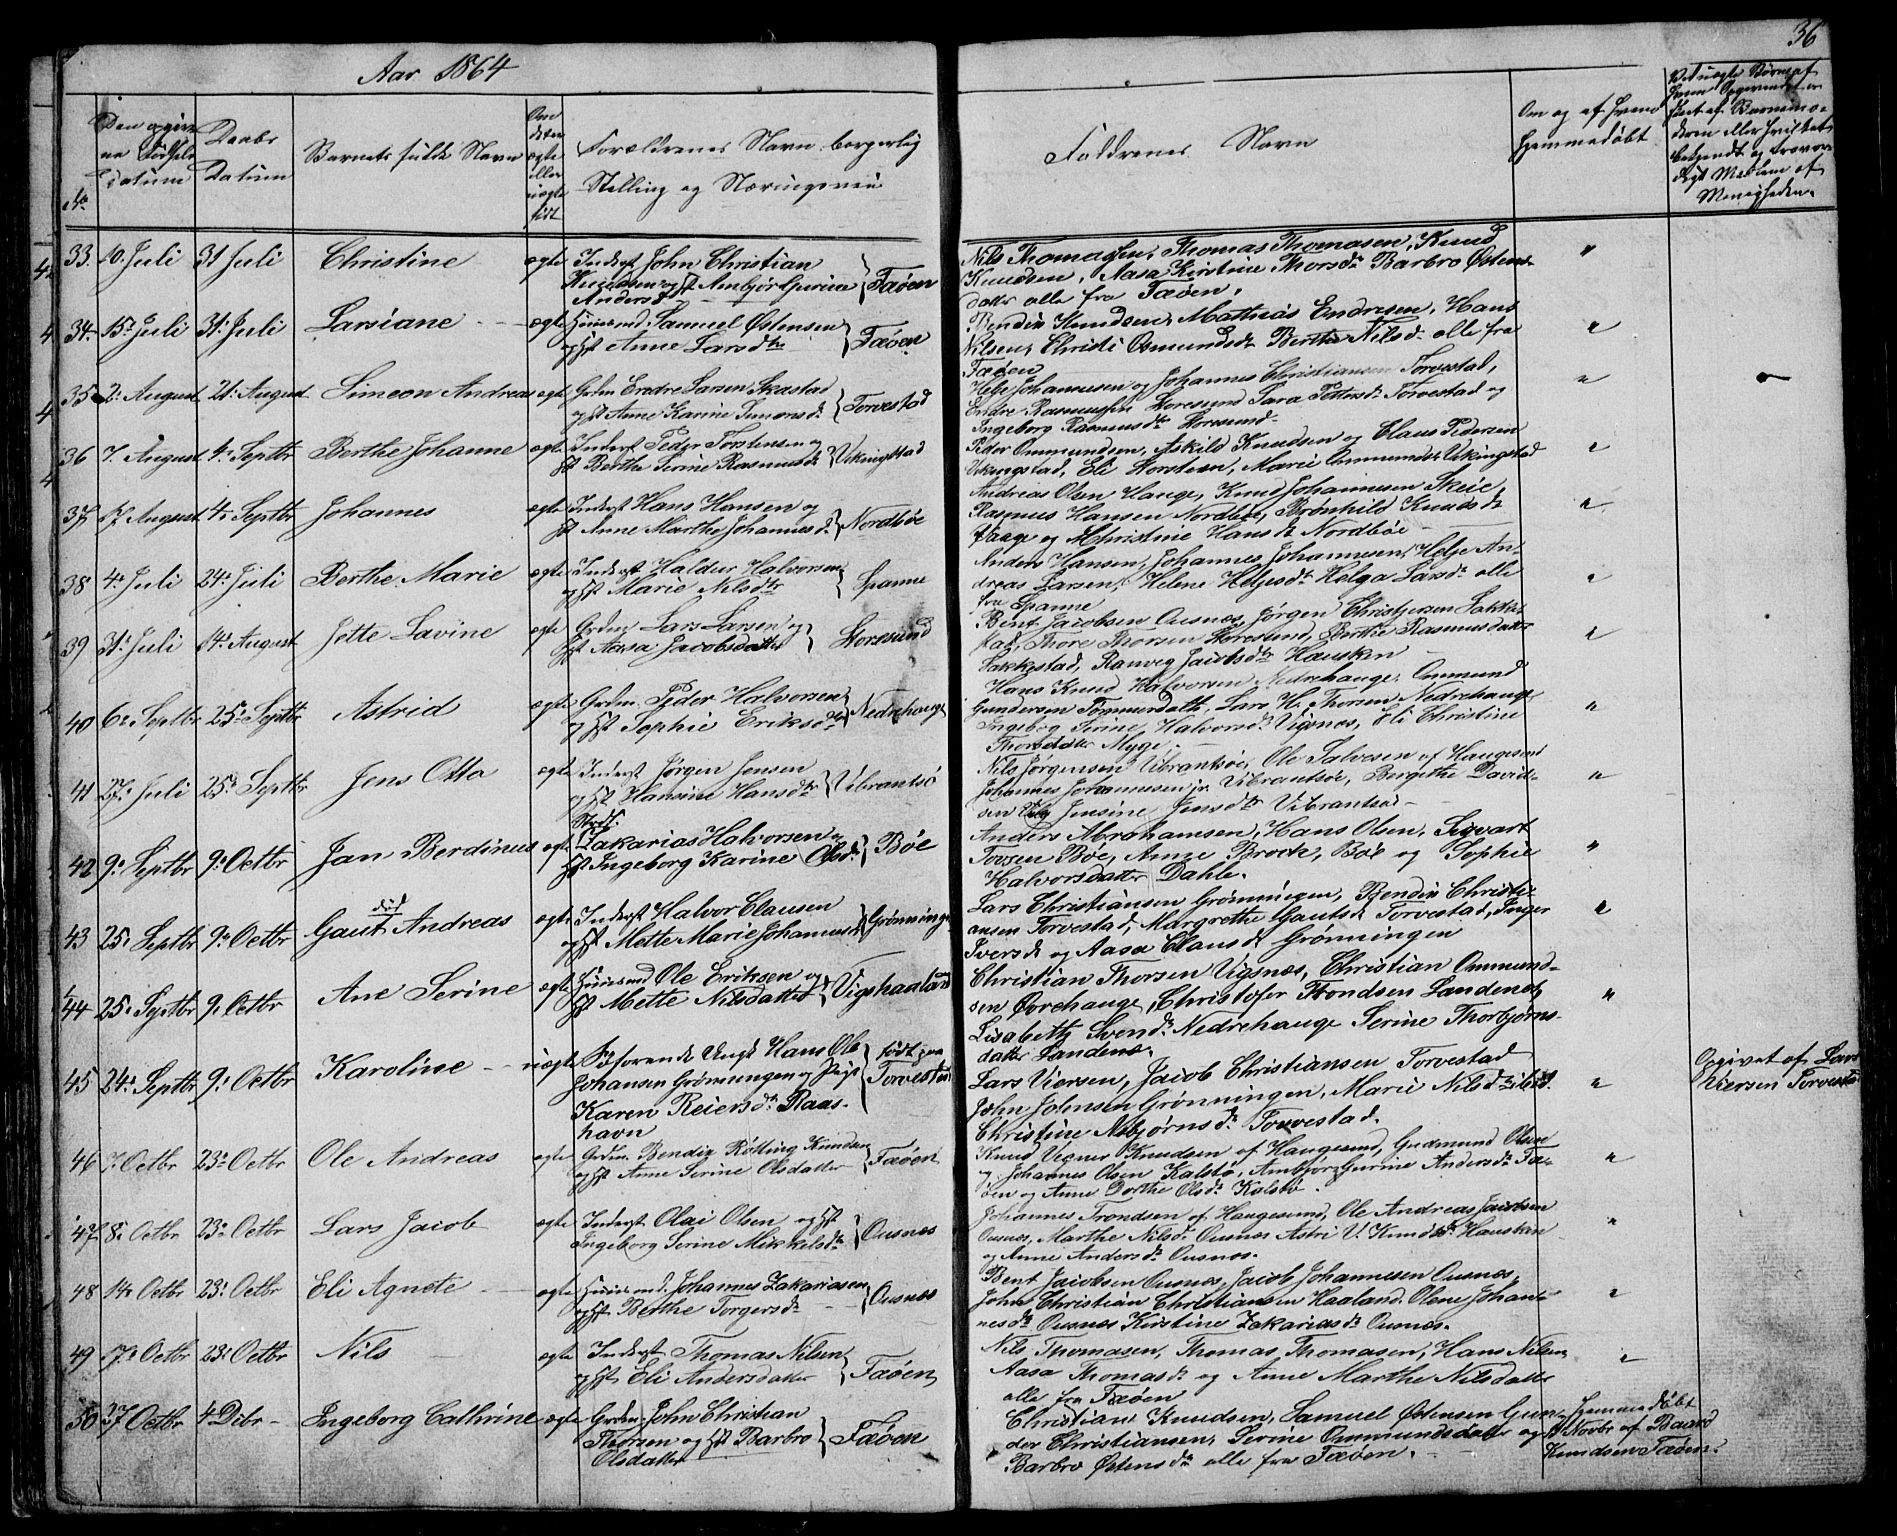 36
Aar 1864
No
Datum
Daabs
Datum
Barnets fulde Navn
Om
ægte
eller
uægte
født
Forældrenes Navn borgerlig
Stilling og
Faddrenes Navn
Om og af hvem
hjemmedøbt
Menigheden.
33. 10. Juli 31 Juli Christine ægte Inderst John Christian
Knudsen og Hst Ambjør Gurine Faøen
Andersd
Nils Thomassen, Thomas Thomasen, Knud
Knudsen, Aasa Kirstine Thorsdr Barbro Østens-
datter alle fra Fæøen.
34. 15de Juli 31. Juli Larsiane ægte Huusmd Samuel Østensen
og Hst Anne Larsdtr Fæøen
Bendix Knudsen, Mathias Endresen, Hans
Nilsen, Christi Osmundsdr Berthe Nilsd. alle fra
Fæøen
35 2. August 21. August Simeon Andreas ægte Grdm Endre Larsen Skastad
og Hst Anne Karine Simonsdr Torvestad
Helje Johannesen og Johannes Christiansen Torvestad,
Endre Rasmussen Storesund Sara Pettersdr Torvestad og
Ingeborg Rasmusdtr Storesund
36 7. August 4. Septbr Berthe Johanne ægte Inderst Peder Torstensen og
Hst Berthe Serine Rasmusdr Vikingstad
Peder Ommundsen, Askild Knudsen og Claus Pedersen
Vikingstad, Eli Torstein, Marie Ommundsdr Vikingstad
37 17 August 4. Septbr Johannes ægte Inderst Hans Hansen og
Hst Anne Marthe Johannesdr Nordbøe
Andreas Olsen Hauge, Knud Johannesen Skeie,
Rasmus Hansen Nordbøe, Brønhild Knudsdr
og Christine Hansdr Nordbøe
38 4. Juli 24. Juli Berthe Marie ægte Inderst Haldur Halvorsen
og Hst Marie Nilsdtr Spanne
Anders Hansen, Johannes Johannesen, Helje An-
dreas Larsen, Helene Heljesdr Helga Larsdr alle
fra Spanne
39 31. Juli 14. August Jette Lavine ægte Grdm Lars Larsen og
Hst Aasa Jacobsdatter Storesund
Bent Jacobsen Ousnes, Jørgen Christjersen Sakke-
stad, Thore Thorsen Storesund, Berthe Rasmusdatter
Sakkestad, Ranveg Jacobsdtr Hausken
40 6. Septbr 25. Septbr Astrid ægte Grdm. Peder Halvorsen
og Hst Sophie Eriksdtr Nedrehauge
Hans Knud Halvorsen Nedrehauge, Ommund
Gundersen Tommerdath, Lars H. Thorsen Nedrehauge
Ingeborg Serine Halvorsdr Vigsnes, Eli Christine
Thorsdatter Myge.
41 27. Juli 25. Septbr Jens Otto ægte Inderst Jørgen Jensen
og Hst Hansine Hansdtr Vibrantsø
Nils Jørgensen Vibrantsøe, Ole Salvesen af Haugesund
Johannes Johannesen jr. Vibrantsøe, Bergethe David-
sen og Jensine Jensdtr Vibrantsøe
42 9. Septbr 9. Octbr Jan Berdinus ægte Zakarias Halvorsen og
Hst Ingeborg Karine Olsdr Bøe
Anders Abrahamsen, Hans Olsen, Sigvart
Torsen Bøe, Anne Brock, Bøe og Sophie
Halvorsdatter Dahle.
43 25. Septbr 9. Octbr Gaut Andreas ægte Inderst Halvor Clausen
og Hst Mette Marie Johannesdr Grønningen
Lars Christiansen Grønningen, Bendix Christi-
ansen Torvestad, Margrethe Gautsdr Torvestad, Inger
Iversdr og Aasa Clausdr Grønningen
44 25. Septbr 9. Octbr Ane Serine ægte Huusmd Ole Eriksen og
Hst Mette Nilsdatter Vigshaaland
Christian Thorsen Vigsnæs, Christian Ommund-
sen Øvrehauge, Christofer Trondsen Landenes,
Lisabeth Svendr Nedrehauge Serine Thorbjørns-
datter Landenes.
45 24. Septbr 9. Octbr Karoline uægte Hans Ole
Johansen Grønningen og Pige
Karen Reiersdr Raas-
havn
født paa
Torvestad
Lars Viersen, Jacob Christiansen Torvestad
John Johnsen Grønningen, Marie Nilsd ibid.
Christine Asbjørnsdr Torvestad.
Opgivet af Lars
Viersen Torvestad
46 7. Octbr 23. Octbr Ole Andreas ægte Grdm. Bendix Røtting Knudsen
og Hst Anne Serine Olsdatter Fæøen
Knud Vigner Knudsen af Haugesund, Gudmund Olsen
og Johannes Olsen Kalstø, Ambjør Gurine Andersdr Fæ-
øen og Anne Dorthe Olsdr Kalstø.
47 8. Octbr 23. Octbr Lars Jacob ægte Inderst Olai Olsen og Hst
Ingeborg Serine Mikkelsdtr Ousnes
Johannes Trondsen af Haugesund, Ole Andreas Jacobsen
Ousnes, Marthe Nilsdr Ousnes Astri V. Knudsdr Hausken
og Anne Andersdr Ousnes.
48 14. Octbr 23. Octbr Eli Agnete ægte Huusmd. Johannes Zakariasen
og Hst Berthe Torgersdr Ousnes
Bent Jacobsen Ousnes, Jacob Johannesen Ousnes,
John Christian Christiansen Haaland, Olene Johan-
nesdr Ousnes Kirstine Zakariasdr Ousnes.
49 17. Octbr 23. Octbr Nils ægte Inderst Thomas Nilsen
og Hst Eli Andersdatter Fæøen
Nils Thomasen, Thomas Thomasen, Hans Nilsen,
Aasa Thomasdr og Anne Marthe Nilsdatter
alle fra Fæøen
50 37 Octbr 4 Dcbr Ingeborg Cathrine ægte Grdm. John Christian
Thorsen og Hst Barbro Fæøen
Olsdatter
Christian Knudsen, Samuel Østensen Gun-
der Christiansen, Serine Ommundsdatter og
Barbro Østensdr alle fra Fæøen.
Hjemmedøbt
Novbr af Baard
Knudsen Fæøen.